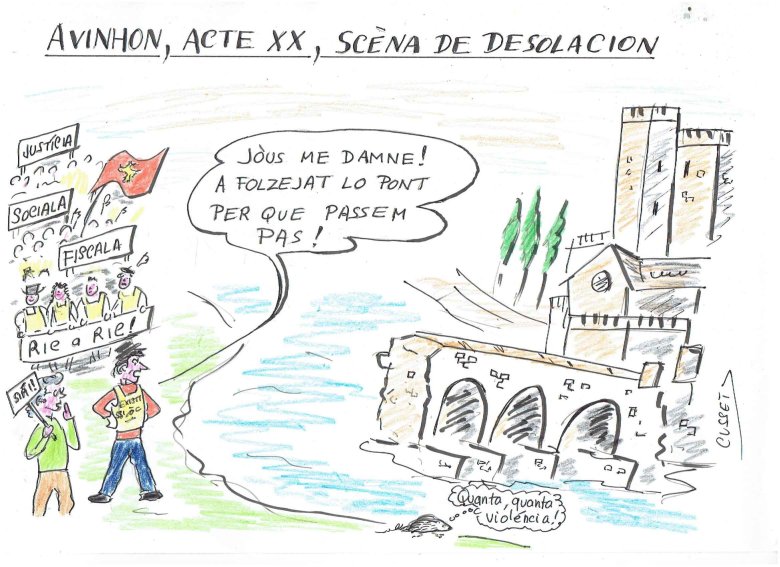 AVINHON, ACTE XX, SCÈNA DE DESOLACION
JUSTÍCIA
SOCIALA
FISCALA
RIE a RIE!
JÒUS ME DAMNE!
A FOLZEJAT LO PONT
PER QUE PASSEM
PAS!
Quanta, quanta
violéncia!
CUSSET